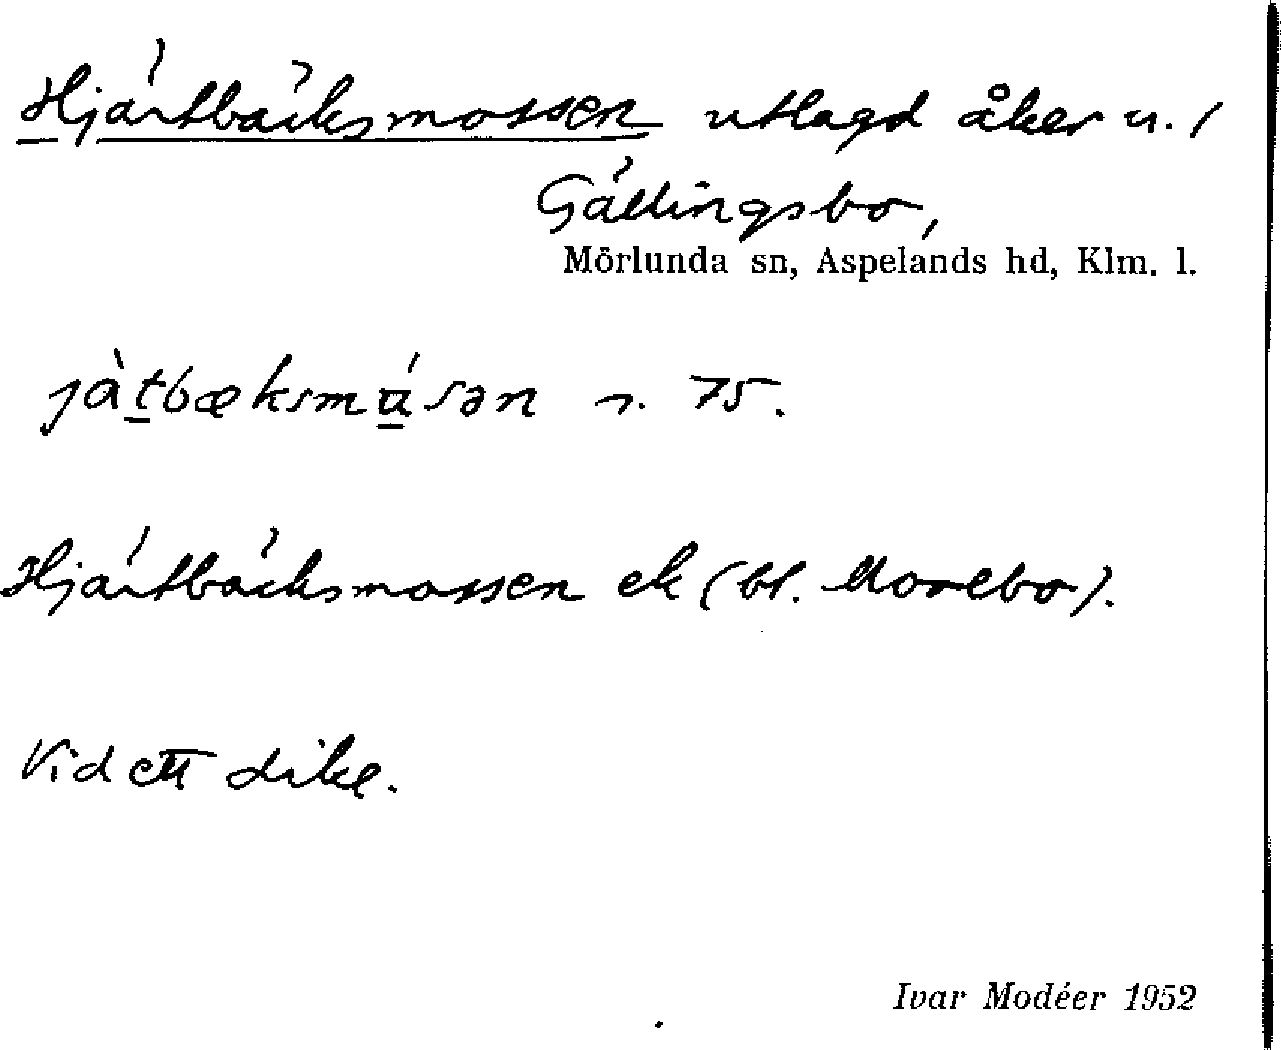 Hjärtbäcksmossen utlagd åker u. /
Gällingsbo,
Mörlunda sn, Aspelands hd, Klm. l.
jàtbæksmúsən 75.
Hjärtbäcksmossen ek (bl. Morebo).
Vid ett dike.
Ivar Modéer 1952